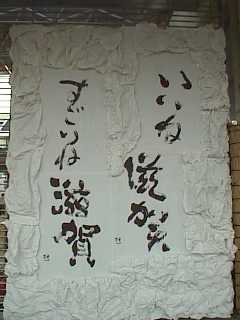 いいね
滋賀
すごいね
滋賀